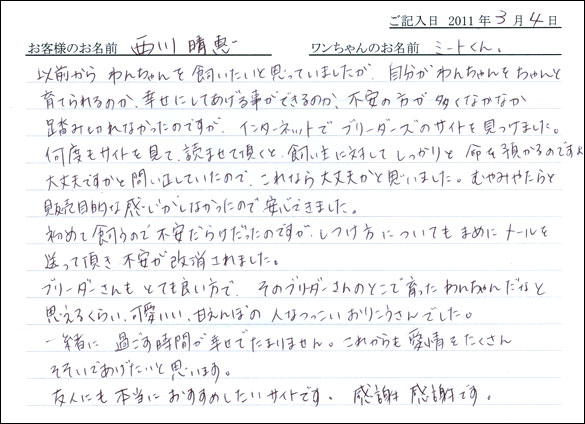 ご記入日 2011年3月4日
お客様のお名前 西川 晴恵 ワンちゃんのお名前 ミートくん。
以前から わんちゃんを 飼いたいと思っていましたが、自分がわんちゃんを ちゃんと
育てられるのか、幸せにしてあげる事ができるのか、不安の方が 多くなかなか
踏みきれなかったのですが、インターネットで ブリーダーズのサイトを 見つけました。
何度もサイトを見て、読ませて頂くと、飼い主に対して しっかりと 命を預かるのですよ
大丈夫ですかと 問い正していたので、これなら大丈夫かと思いました。むやみやたらと
販売目的な感じがしなかったので 安心できました。
初めて 飼うので 不安だらけだったのですが、しつけ方についても まめに メールを
送って頂き 不安が 改消されました。
ブリーダーさんも とても良い方で、そのブリーダーさんのとこで育ったわんちゃんだなと
思えるくらい、可愛いい、甘えんぼの 人なつっこい おりこうさんでした。
一緒に 過ごす時間が幸せでたまりません。これからも 愛情をたくさん
そそいであげたいと思います。
友人にも 本当に おすすめしたいサイトです。 感謝 感謝です。